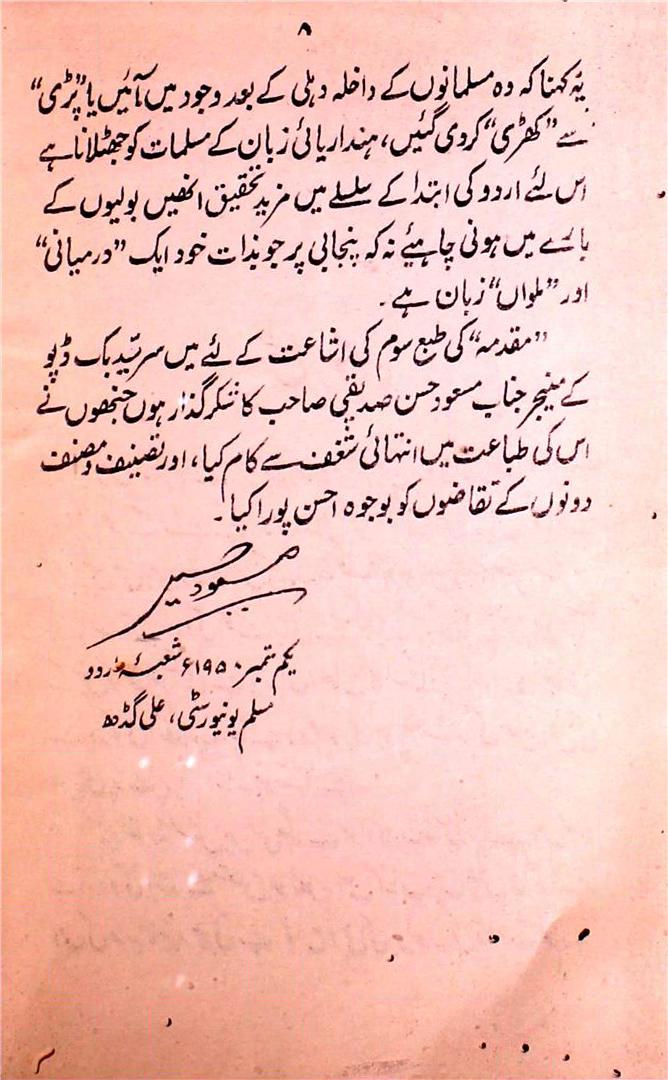 ۸
یہ کہنا کہ وہ مسلمانوں کے داخلہ دہلی کے بعد وجود میں آئیں یا "پڑی"
سے "کھڑی" کردی گئیں، ہنداریائی زبان کے مسلمات کو جھٹلانا ہے
اس لئے اردو کی ابتدا کے سلسلے میں مزید تحقیق انھیں بولیوں کے
بارے میں ہونی چاہیئے نہ کہ پنجابی پر جو بذات خود ایک "درمیانی"
اور "ملواں" زبان ہے۔
"مقدمہ" کی طبع سوم کی اشاعت کے لئے میں سرسیّد بک ڈپو
کے منیجر جناب مسعود حسن صدیقی صاحب کا شکر گذار ہوں جنھوں نے
اس کی طباعت میں انتہائی شغف سے کام کیا، اور تصنیف و مصنف
دونوں کے تقاضوں کو بوجوہ احسن پورا کیا۔
مسعود حسین
یکم ستمبر ۱۹۵۰ء شعبۂ اردو
مسلم یونیورسٹی، علی گڈھ